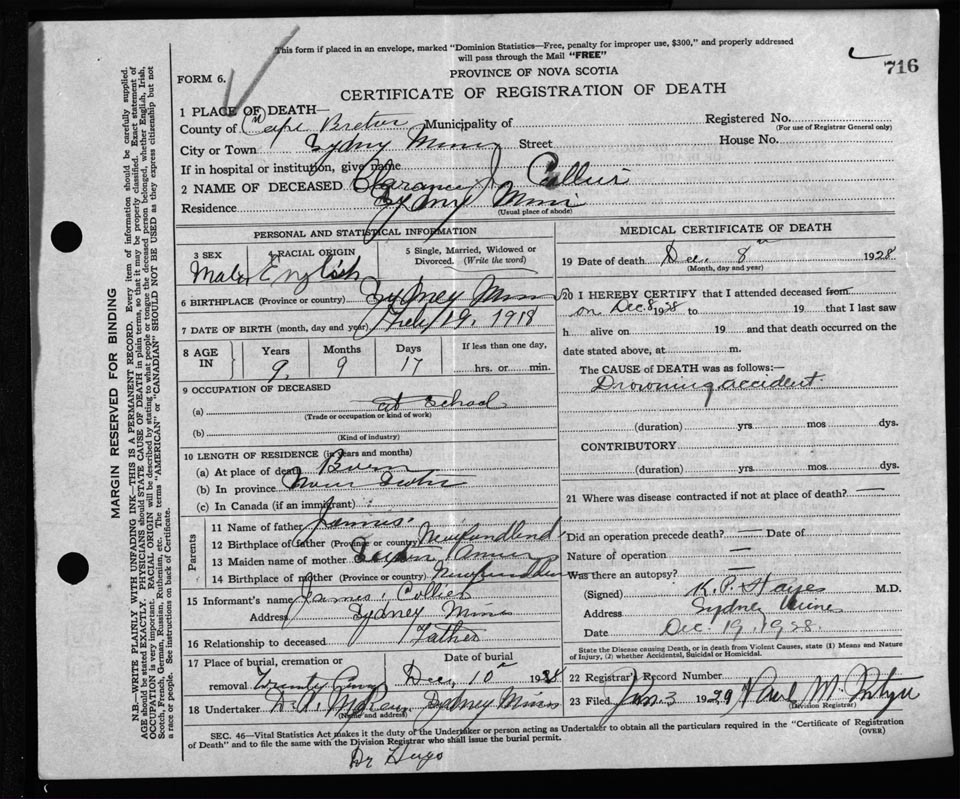 This form if placed in an envelope, marked "Dominion Statistics—Free, penalty for improper use, $300," and properly addressed
will pass through the Mail "FREE"
716
PROVINCE OF NOVA SCOTIA
FORM 6.
CERTIFICATE OF REGISTRATION OF DEATH
1 PLACE OF DEATH—
County of Cape Breton Municipality of Registered No.
(For use of Registrar General only)
City or Town Sydney Mines Street House No.
If in hospital or institution, give name
2 NAME OF DECEASED Clarance J. Collier
Residence Sydney Mines
(Usual place of abode)
PERSONAL AND STATISTICAL INFORMATION
3 SEX 4 RACIAL ORIGIN 5 Single, Married, Widowed or
Divorced. (Write the word)
Male English
6 BIRTHPLACE (Province or country) Sydney Mines
7 DATE OF BIRTH (month, day and year) 19, 1918
8 AGE IN Years Months Days If less than one day,
9 9 17 hrs. or min.
9 OCCUPATION OF DECEASED
(a) at School
(Trade or occupation or kind of work)
(b)
(Kind of industry)
10 LENGTH OF RESIDENCE (in years and months)
(a) At place of death Born
(b) In province Nova Scotia
(c) In Canada (if an immigrant)
Parents
11 Name of father James
12 Birthplace of father (Province or country) Newfoundland
13 Maiden name of mother
14 Birthplace of mother (Province or country) Newfoundland
15 Informant's name James Collier
Address Sydney Mines
16 Relationship to deceased Father
17 Place of burial, cremation or Date of burial
removal Dec 10 1928
18 Undertaker Sydney Mines
(Name and address)
MEDICAL CERTIFICATE OF DEATH
19 Date of death Dec. 8th 1928
(Month, day and year)
20 I HEREBY CERTIFY that I attended deceased from
on Dec 8 1928 to 19 that I last saw
h alive on 19 and that death occurred on the
date stated above, at m.
The CAUSE of DEATH was as follows:—
Drowning accident.
(duration) yrs. mos dys.
CONTRIBUTORY
(duration) yrs. mos. dys.
21 Where was disease contracted if not at place of death? —
Did an operation precede death? — Date of
Nature of operation —
Was there an autopsy? —
(Signed) M.D.
Address Sydney Mines
Date Dec. 19. 1928.
State the Disease causing Death, or in death from Violent Causes, state (1) Means and
Nature of Injury, (2) whether Accidental, Suicidal or Homicidal.
22 Registrar's Record Number
23 Filed Jan 3 1929
(Division Registrar)
SEC. 46—Vital Statistics Act makes it the duty of the Undertaker or person acting as Undertaker to obtain all the particulars required in the "Certificate of Registration
of Death" and to file the same with the Division Registrar who shall issue the burial permit.
(OVER)
Dr Hugo
MARGIN RESERVED FOR BINDING
N.B.—WRITE PLAINLY WITH UNFADING INK—THIS IS A PERMANENT RECORD. Every item of information should be carefully supplied.
AGE should be stated EXACTLY. PHYSICIANS should STATE CAUSE OF DEATH in plain terms, so that it may be properly classified. Exact statement of
OCCUPATION is very important. RACIAL ORIGIN will be described by stating to what people or tongue the deceased person belonged, whether English, Irish,
Scotch, French, German, Russian, Ruthenian, etc. The terms "AMERICAN" or "CANADIAN" SHOULD NOT BE USED as they express citizenship but not
a race or people. See instructions on back of Certificate.